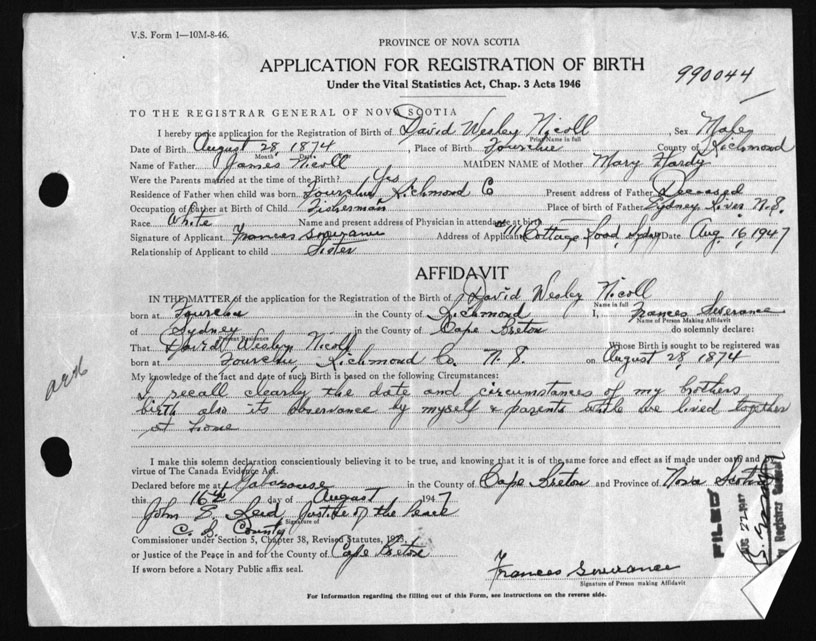 V.S. Form 1—10M-8-46.
PROVINCE OF NOVA SCOTIA
APPLICATION FOR REGISTRATION OF BIRTH
990044
Under the Vital Statistics Act, Chap. 3 Acts 1946
TO THE REGISTRAR GENERAL OF NOVA SCOTIA
I hereby make application for the Registration of Birth of David Wesley Nicoll, Sex Male
Print Name in full
Date of Birth August 28, 1874, Place of Birth Fourchu County of Richmond
Month
Name of Father James Nicoll MAIDEN NAME of Mother Mary Hardy
Were the Parents married at the time of the Birth? Yes
Residence of Father when child was born Fourchu Richmond C Present address of Father Deceased
Occupation of Father at Birth of Child Fisherman Place of birth of Father Sydney River N.S.
Race White Name and present address of Physician in attendance at birth
Signature of Applicant Frances Severance Address of Applicant Cottage Road, Sydney Date Aug. 16, 1947
Relationship of Applicant to child Sister
AFFIDAVIT
IN THE MATTER of the application for the Registration of the Birth of David Wesley Nicoll
Name in full
born at Fourchu in the County of Richmond I, Frances Severance
Name of Person Making Affidavit
of Sydney in the County of Cape Breton do solemnly declare:
Present Residence
That David Wesley Nicoll Whose Birth is sought to be registered was
born at Fourchu, Richmond Co. N. S. on August 28, 1874
My knowledge of the fact and date of such Birth is based on the following Circumstances:
I recall clearly the date and circumstances of my brothers
birth also its observance by myself & parents while we lived together
at home
I make this solemn declaration conscientiously believing it to be true, and knowing that it is of the same force and effect as if made under oath and by
virtue of The Canada Evidence Act.
Declared before me at Gabarouse in the County of Cape Breton and Province of Nova Scotia
this 16th day of August 1947
John E. Reid Justice of the Peace
Signature of
C. B. County
Commissioner under Section 5, Chapter 38, Revised Statutes, 1923,
or Justice of the Peace in and for the County of Cape Breton
If sworn before a Notary Public affix seal.
Frances Severance
Signature of Person making Affidavit
For Information regarding the filling out of this Form, see instructions on the reverse side.
FILED
AUG 22 1947
Registrar General